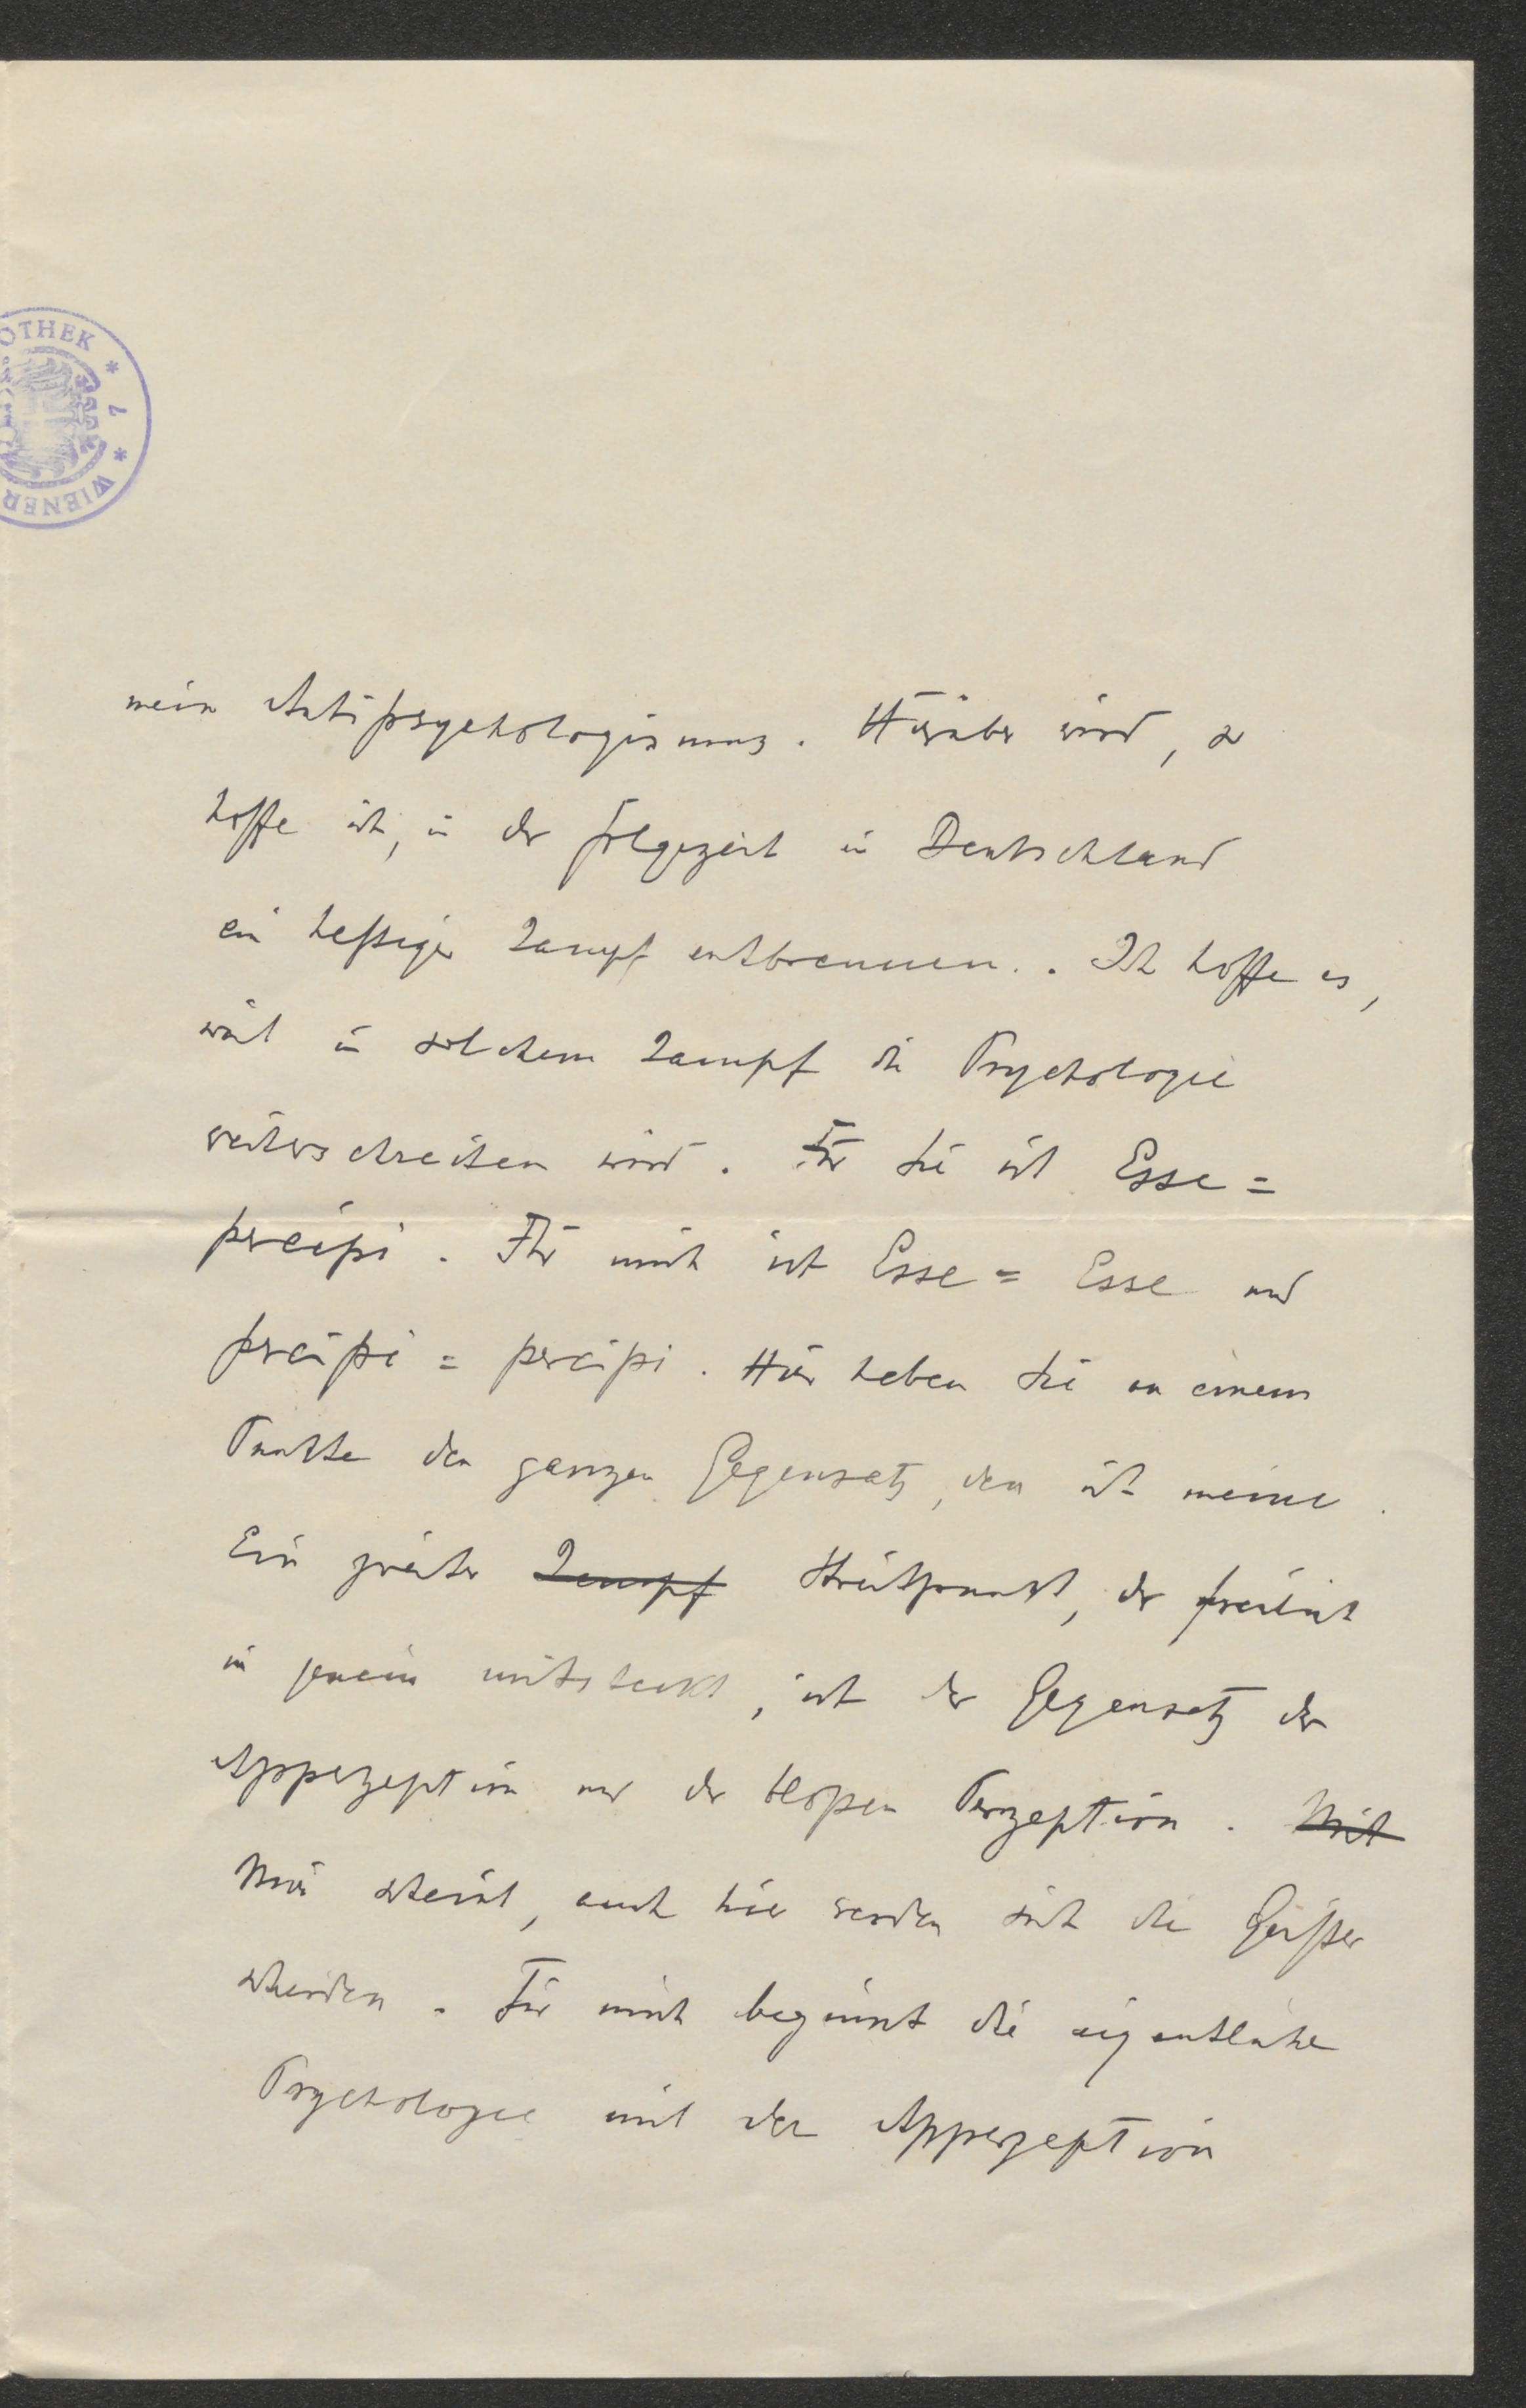 OTHEK * 7 * WIENER
mein Antipsychologismus. Hierüber wird, so
hoffe ich, in der Folgezeit in Deutschland
ein heftiger Kampf entbrennen. . Ich hoffe es,
weil in solchem Kampf die Psychologie
weiterschreiten wird. Für Sie ist Esse =
percipi. Für mich ist Esse = Esse und
percipi = percipi. Hier haben Sie an einem
Punkte den ganzen Gegensatz, den ich meine.
Ein zweiter Kampf Streitpunkt, der freilich
in jenem mitsteckt, ist der Gegensatz der
Apperzeption und der bloßen Perzeption. Mit
Mir scheint, auch hier werden sich die Geister
scheiden. Für mich beginnt die eigentliche
Psychologie mit der Apperzeption